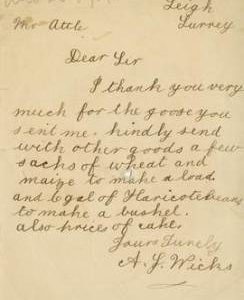 Leigh
Surrey
Mr Attle
Dear Sir
I thank you very
much for the goose you
sent me. Kindly send
with other goods a few
sacks of wheat and
maize to make a load
and 6 gal of Haricotebeans
to make a bushel.
also prices of cake.
Yours Turely
A. J. Wicks